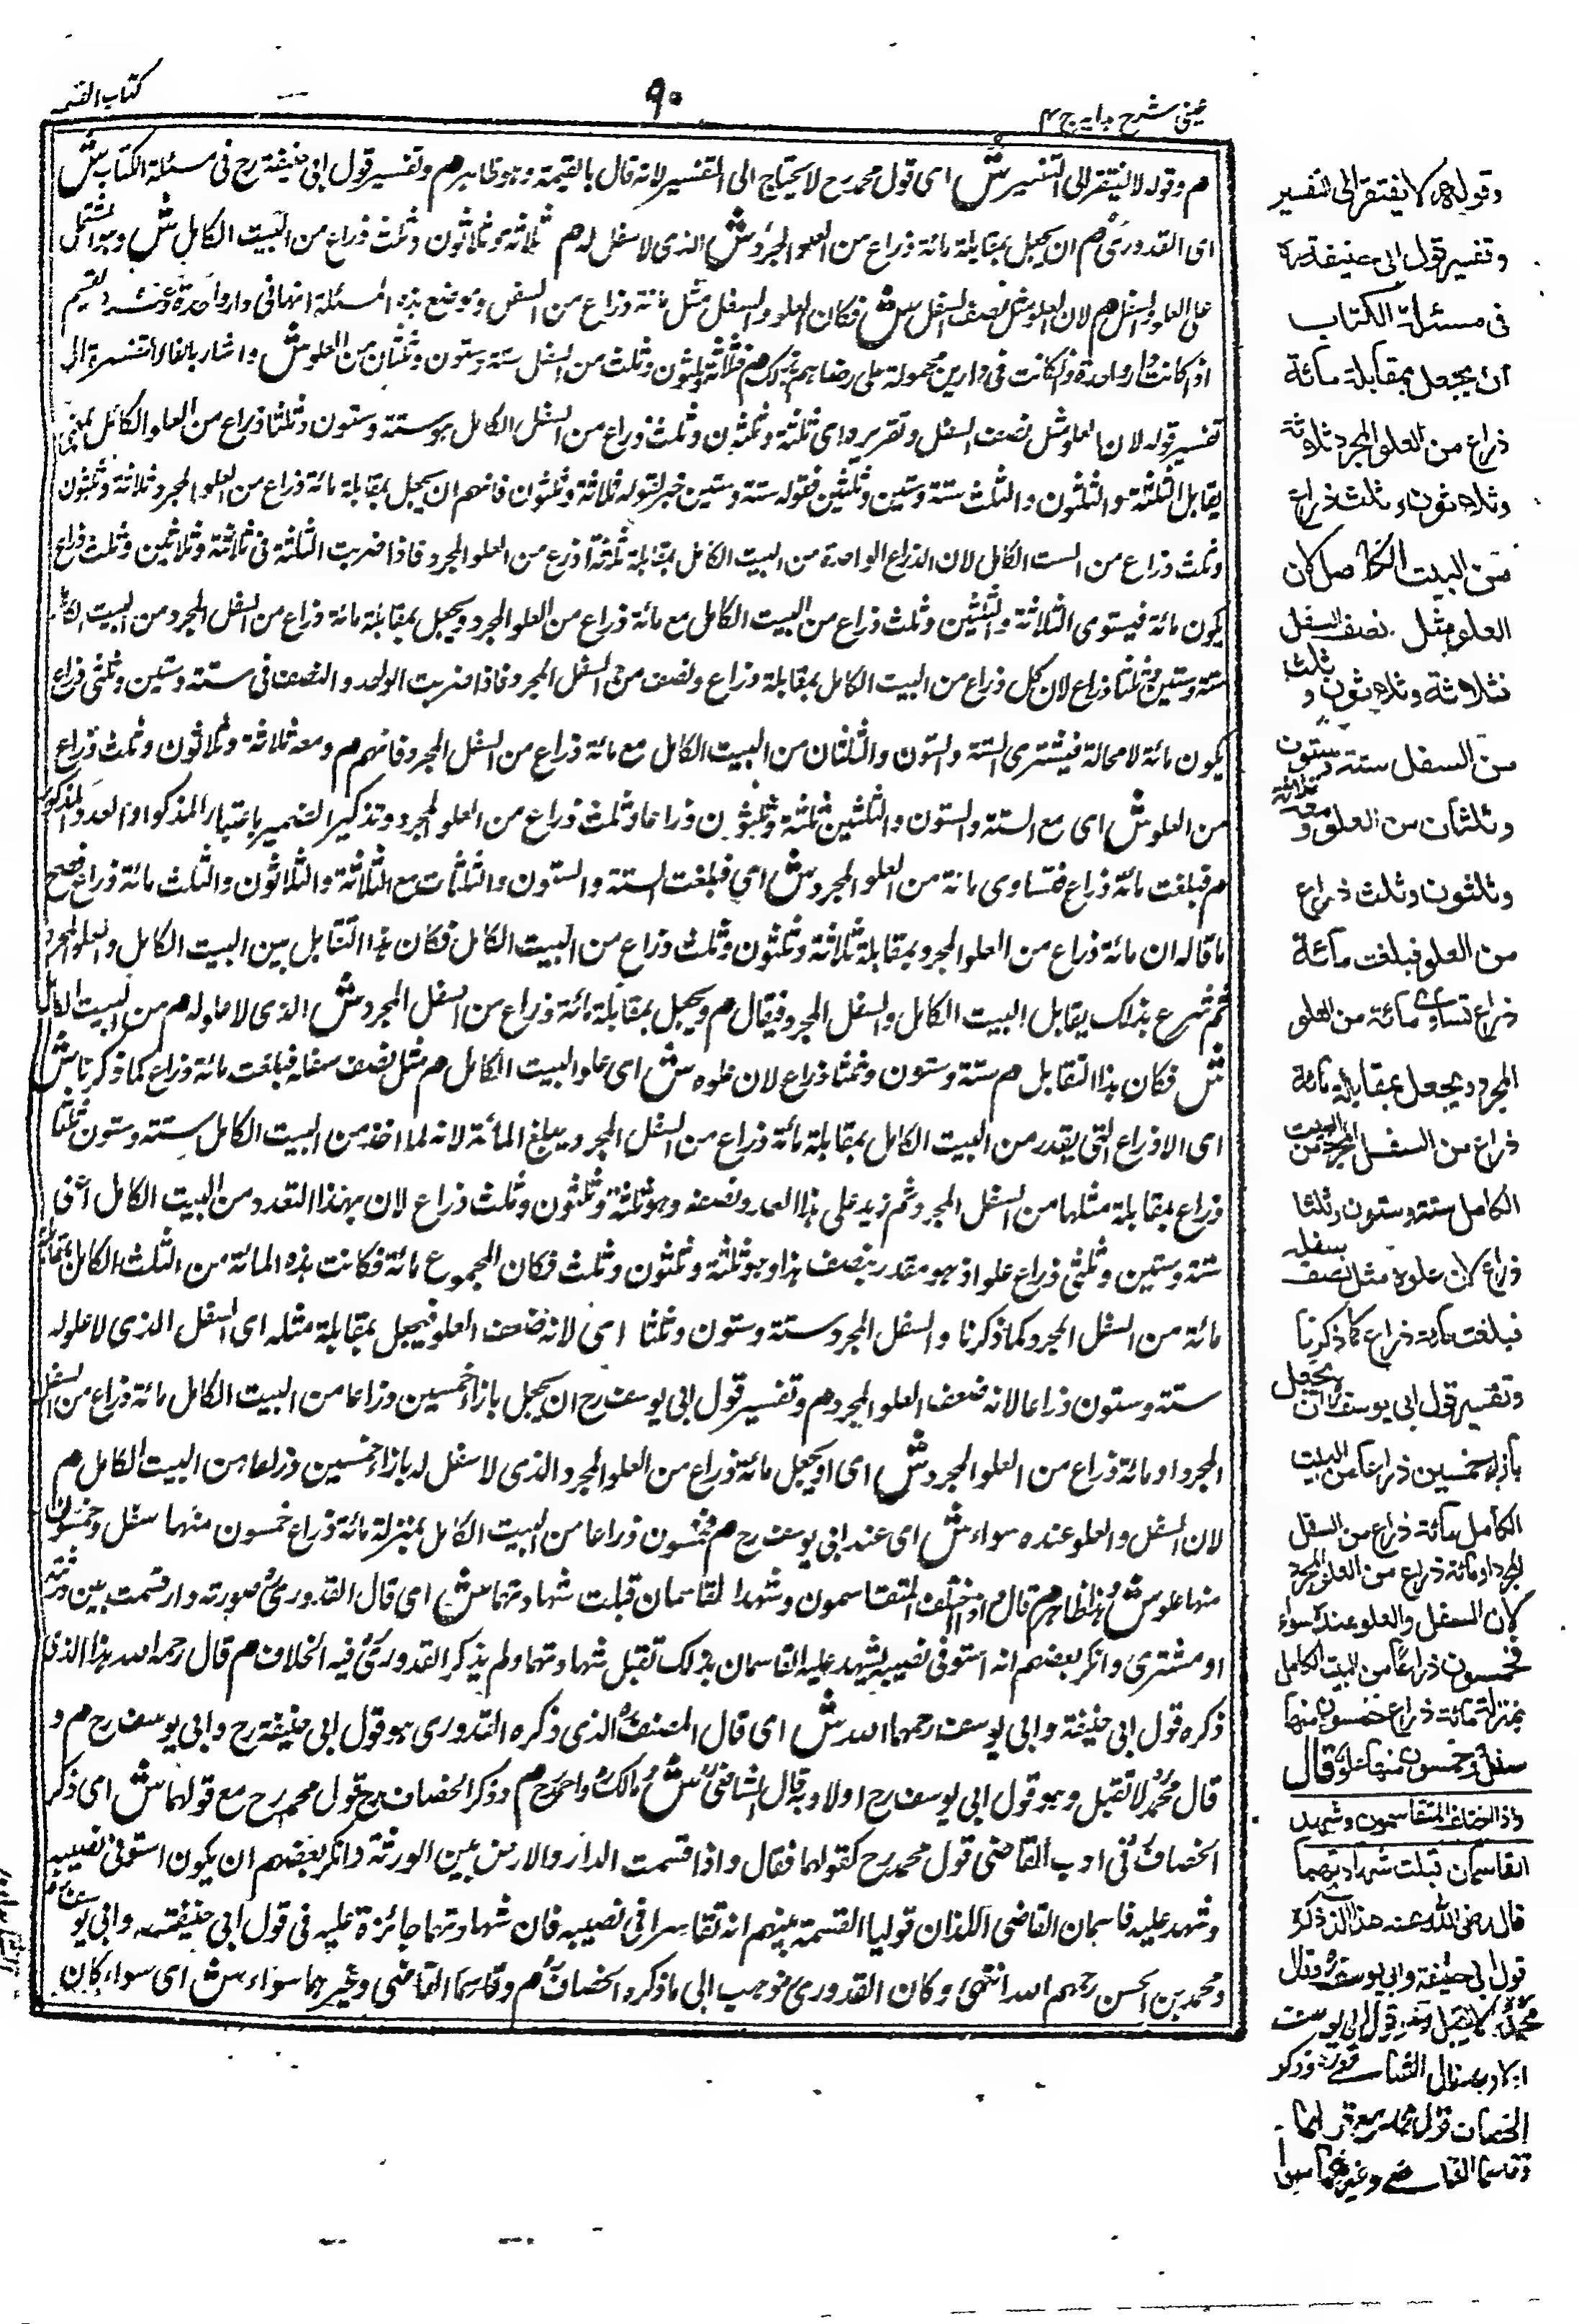 عینی شرح ہدایہ ج ۴
۹۰
کتاب القسمہ
م وقولہ لا یفتقر الی التفسیر ش ای قول محمد رح لا یحتاج الی التفسیر لانہ قال بالقیمۃ وہو ظاہر م وتفسیر قول ابی حنیفۃ رح فی مسئلۃ الکتاب ش
ای القدوری م ان یجعل بمقابلۃ مائۃ ذراع من العلو المجرد ش الذی لا سفل لہ م ثلاثۃ وثلاثون وثلث ذراع من البیت الکامل ش وہو المشتمل
علی العلو والسفل م لان العلو مثل نصف السفل ش فکان العلو والسفل مثل مائۃ ذراع من السفل وموضع ہذہ المسئلۃ انہا فی دار واحدۃ
اذا کانت دار واحدۃ وان کانت فی دارین محمولۃ علی رضاہم م فثلاثۃ وثلثون وثلث من السفل ستۃ وستون وثلثان من العلو ش واشار بالفاء التفسیرۃ الی
تفسیر قولہ لان العلو مثل نصف السفل وتقریرہ ای ثلثۃ وثلثون وثلث ذراع من السفل الکامل ہو ستۃ وستون وثلثا ذراع من العلو الکامل بمعنی
یقابل الثلثۃ والثلثون والثلث ستۃ وستین وثلثین فقولہ ستۃ وستین خبر لقولہ ثلاثۃ وثلثون فافہم ان یجعل بمقابلۃ مائۃ ذراع من العلو المجرد ثلاثۃ وثلثون
وثلث ذراع من البیت الکامل لان الذراع الواحدۃ من البیت الکامل بمقابلۃ ثلثۃ اذرع من العلو المجرد فاذا ضربت الثلثۃ فی ثلاثۃ وثلاثین وثلث ذراع
یکون مائۃ فیستوی الثلاثۃ والثلثین وثلث ذراع من البیت الکامل مع مائۃ ذراع من العلو المجرد ویجعل بمقابلۃ مائۃ ذراع من السفل المجرد من البیت الکامل
ستۃ وستین وثلثا ذراع لان کل ذراع من البیت الکامل بمقابلۃ ذراع ونصف من السفل المجرد فاذا ضربت الواحد والنصف فی ستۃ وستین وثلثی ذراع
یکون مائۃ لا محالۃ فیشتری الستۃ والستون والثلثان من البیت الکامل مع مائۃ ذراع من السفل المجرد فافہم م ومعہ ثلاثۃ وثلاثون وثلث ذراع
من العلو ش ای مع الستۃ والستون والثلثین ثلثۃ وثلثون ذراعا وثلث ذراع من العلو المجرد وتذکیر الضمیر باعتبار المذکور او العدد المذکور
م فبلغت مائۃ ذراع تساوی مائۃ من العلو المجرد ش ای فبلغت الستۃ والستون والثلثات مع الثلاثۃ والثلاثون والثلث مائۃ ذراع فصح
ما قالہ ان مائۃ ذراع من العلو المجرد بمقابلۃ ثلاثۃ وثلثون وثلث ذراع من البیت الکامل فکان ہذا التقابل بین البیت الکامل والعلو المجرد
ثم شرع بذلک یقابل البیت الکامل والسفل المجرد فیقال م ویجعل بمقابلۃ مائۃ ذراع من السفل المجرد ش الذی لا علو لہ م من البیت الکامل
ش فکان ہذا التقابل م ستۃ وستون وثلثا ذراع لان علوہ ش ای علو البیت الکامل م مثل نصف سفلہ فبلغت مائۃ ذراع کما ذکرنا ش
ای الاذراع التی یقدر من البیت الکامل بمقابلۃ مائۃ ذراع من السفل المجرد یبلغ المائۃ لانہ لما اخذ من البیت الکامل ستۃ وستون وثلثا
ذراع بمقابلۃ مثلہا من السفل المجرد ثم زید علی ہذا العدد نصفہ وہو ثلثۃ وثلثون وثلث ذراع لان بہذا التعدد من البیت الکامل اعنی
ستۃ وستین وثلثی ذراع علو اذ ہو مقدر بنصف ہذا وہو ثلثۃ وثلثون وثلث فکان المجموع مائۃ فکانت ہذہ المائۃ من الثلث الکامل بمقابلۃ
مائۃ من السفل المجرد کما ذکرنا والسفل المجرد ستۃ وستون وثلثا ای لانہ ضعف العلو فیجعل بمقابلۃ مثلہ ای السفل الذی لا علو لہ
ستۃ وستون ذراعا لانہ ضعف العلو المجرد م وتفسیر قول ابی یوسف رح ان یجعل بازاء خمسین ذراعا من البیت الکامل مائۃ ذراع من السفل
المجرد او مائۃ ذراع من العلو المجرد ش ای او یجعل مائۃ ذراع من العلو المجرد الذی لا سفل لہ بازاء خمسین ذراعا من البیت الکامل م
لان السفل والعلو عندہ سواء ش ای عند ابی یوسف رح م فخمسون ذراعا من البیت الکامل بمنزلۃ مائۃ ذراع خمسون منہا سفل وخمسون
منہا علو ش ہذا ظاہر م قال واذا اختلف المتقاسمون وشہد القاسمان قبلت شہادتہما ش ای قال القدوری صورتہ دار قسمت بین ورثۃ
او مشتری وانکر بعضہم انہ استوفی نصیبہ یشہد علیہ القاسمان بذلک تقبل شہادتہما ولم یذکر القدوری فیہ الخلاف م قال رحمہ اللہ ہذا الذی
ذکرہ قول ابی حنیفۃ وابی یوسف رحمہما اللہ ش ای قال المصنف الذی ذکرہ القدوری ہو قول ابی حنیفۃ رح وابی یوسف رح م و
قال محمد لا تقبل وہو قول ابی یوسف رح اولا وبہ قال الشافعی ش مالک واحمد رح م وذکر الخصاف رح قول محمد رح مع قولہما ش ای ذکر
الخصاف فی ادب القاضی قول محمد رح کقولہما فقال واذا قسمت الدار والارض بین الورثۃ وانکر بعضہم ان یکون استوفی نصیبہ
وشہد علیہ قاسمان القاضی اللذان تولیا القسمۃ بینہم انہ فی نصیبہ فان شہادتہما جائزۃ علیہ فی قول ابی حنیفۃ وابی یوسف
ومحمد بن الحسن رحمہم اللہ انتہی وکان القدوری ذہب الی ما ذکرہ الخصاف م وقاسما القاضی وغیرہما سواء ش ای سواء کان
وقولہ لا یفتقر الی التفسیر
وتفسیر قول ابی حنیفۃ
فی مسئلۃ الکتاب
ان یجعل بمقابلۃ مائۃ
ذراع من العلو المجرد ثلاثۃ
وثلاثون وثلث ذراع
من البیت الکامل لان
العلو مثل نصف السفل
فثلاثۃ وثلاثون وثلث
من السفل ستۃ وستون
وثلثان من العلو ومعہ ثلاثۃ
وثلثون وثلث ذراع
من العلو فبلغت مائۃ
ذراع تساوی مائۃ من العلو
المجرد ویجعل بمقابلۃ مائۃ
ذراع من السفل المجرد من البیت
الکامل ستۃ وستون وثلثا
ذراع لان علوہ مثل نصف سفلہ
فبلغت مائۃ ذراع کما ذکرنا
وتفسیر قول ابی یوسف ان یجعل
بازاء خمسین ذراعا من البیت
الکامل مائۃ ذراع من السفل
المجرد او مائۃ ذراع من العلو المجرد
لان السفل والعلو عندہ سواء
فخمسون ذراعا من البیت الکامل
بمنزلۃ مائۃ ذراع خمسون منہا
سفل وخمسون منہا علو قال
واذا اختلف المتقاسمون وشہد
القاسمان قبلت شہادتہما
قال رضی اللہ عنہ ہذا الذی ذکرہ
قول ابی حنیفۃ وابی یوسف وقال
محمد لا تقبل وہو قول ابی یوسف
اولا وبہ قال الشافعی وذکر
الخصاف قول محمد مع قولہما
وقاسما القاضی وغیرہما سواء